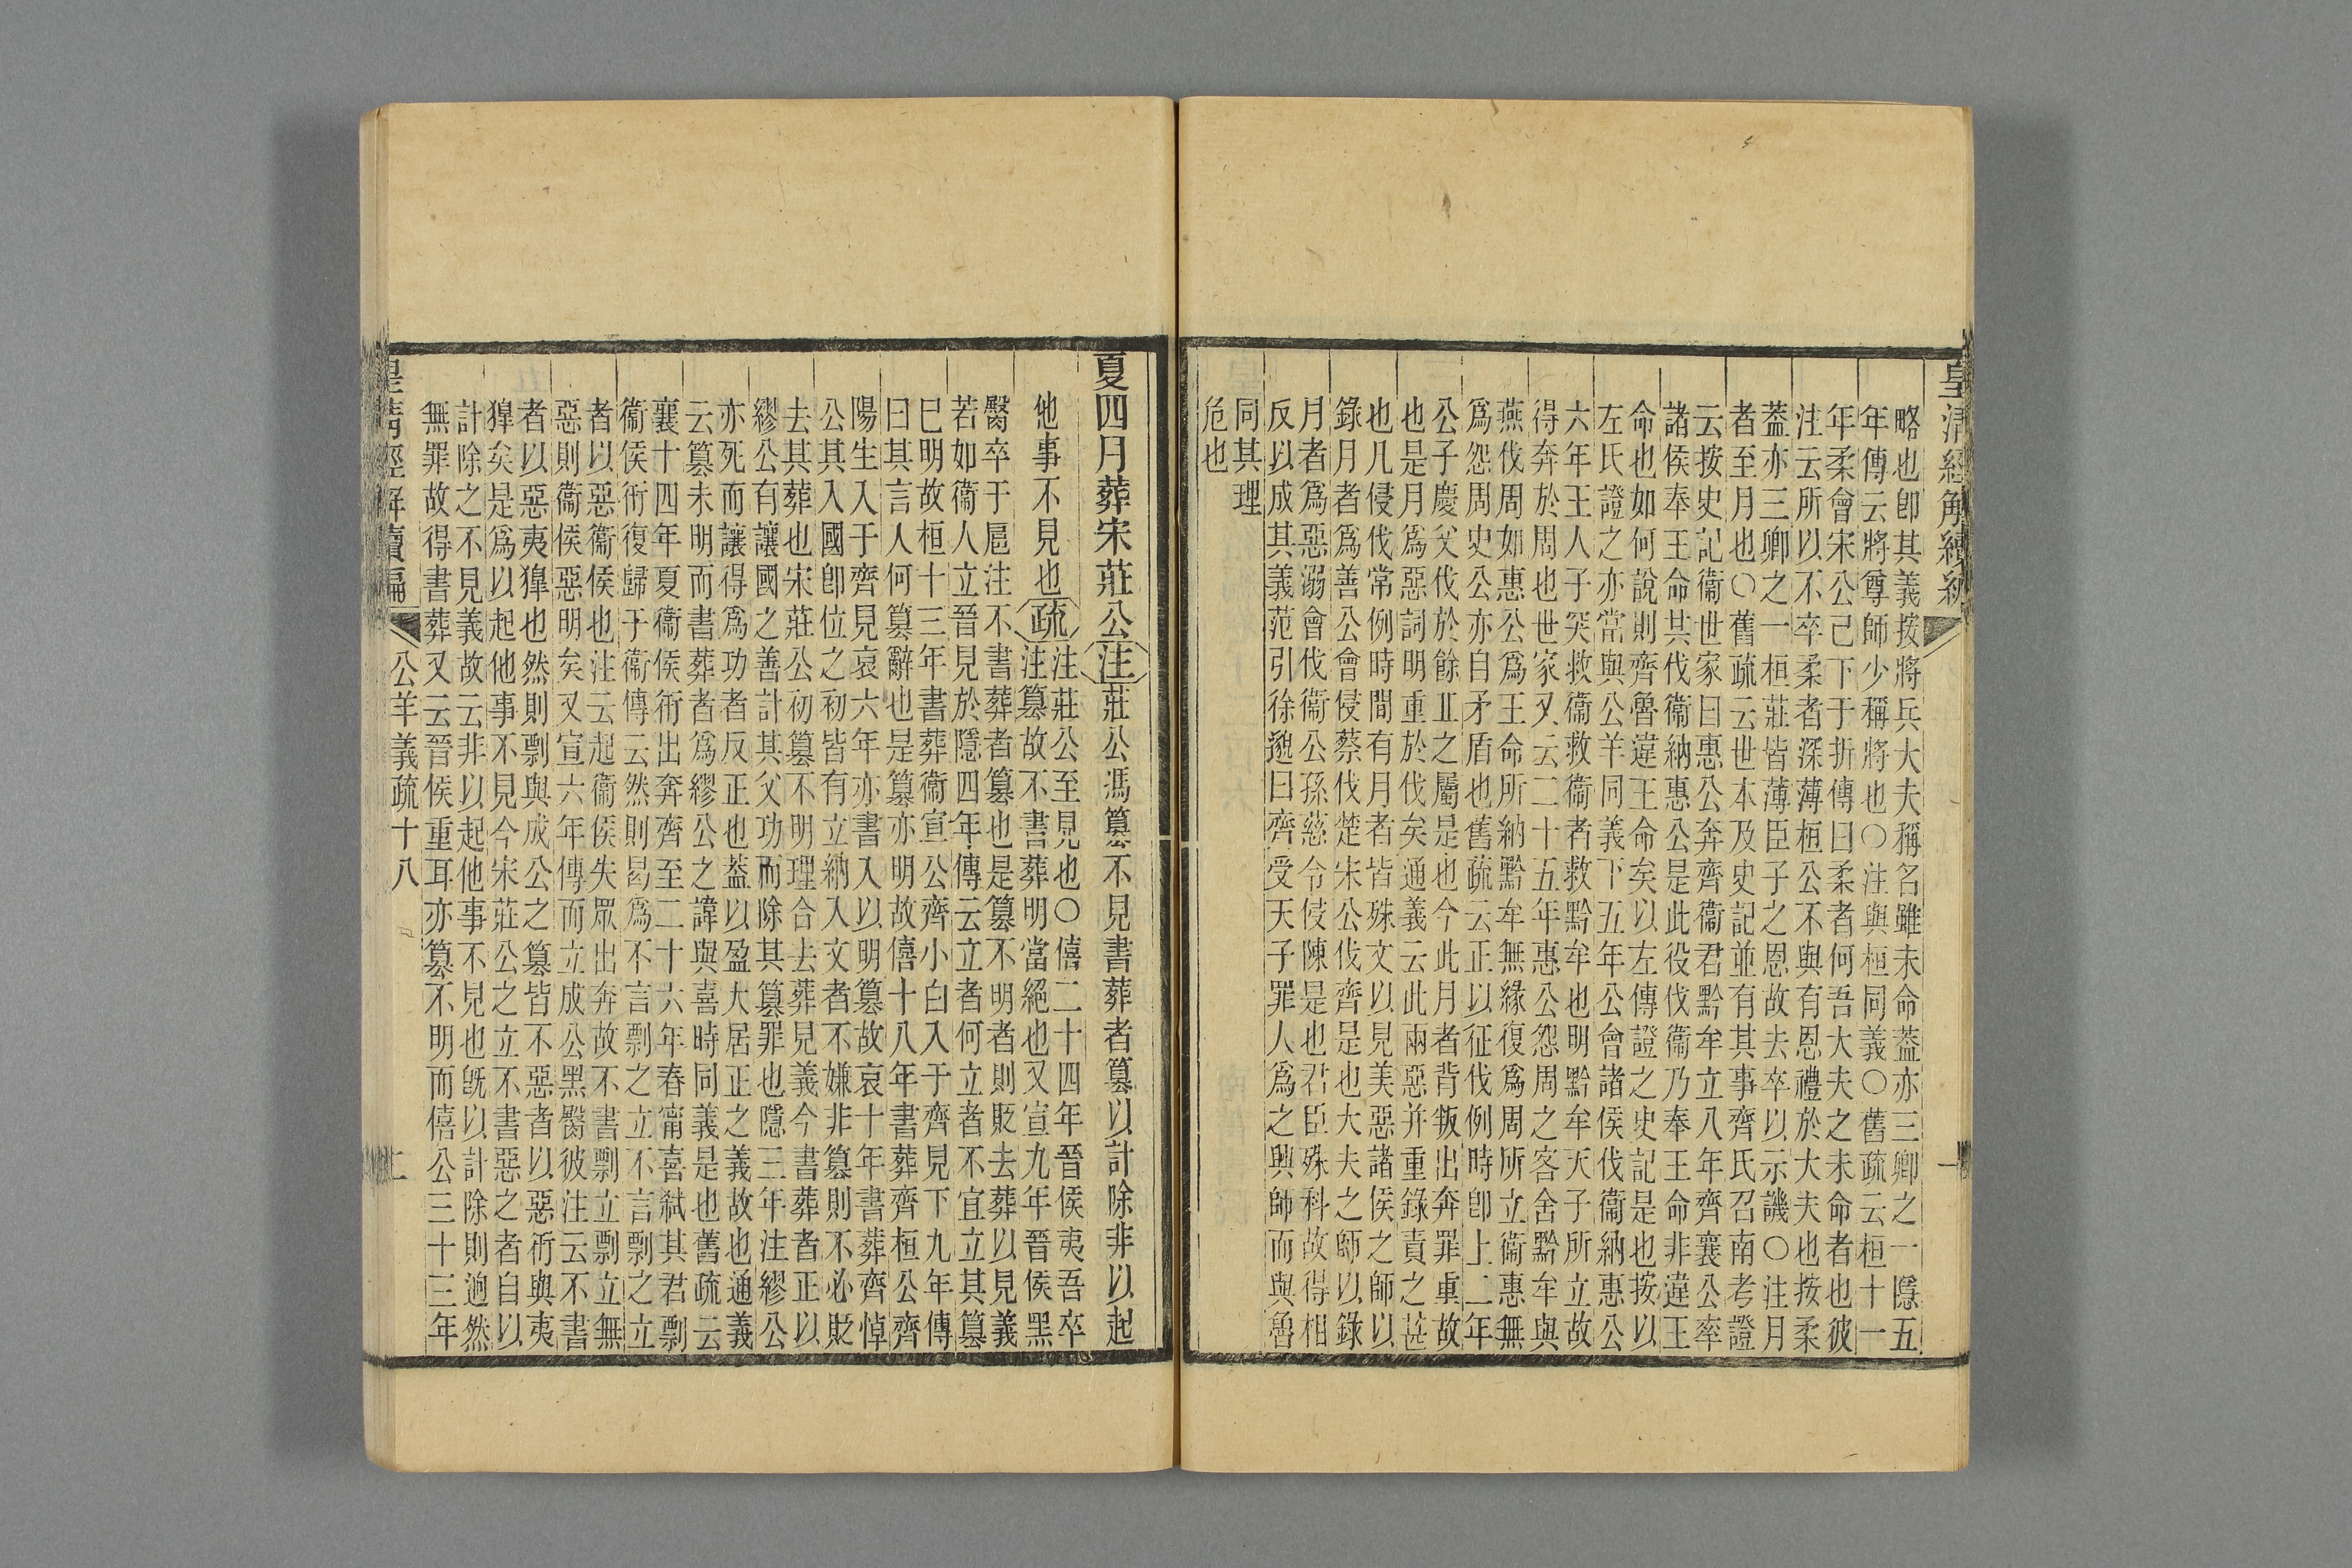 皇清經解續編
略也卽其義按將兵大夫稱名雖未命葢亦三卿之一隱五
年傳云將尊師少稱將也○注與桓同義○舊疏云桓十一
年柔會宋公已下于折傳曰柔者何吾大夫之未命者也彼
注云所以不卒柔者深薄桓公不與有恩禮於大夫也按柔
葢亦三卿之一桓莊皆薄臣子之恩故去卒以示譏○注月
者至月也○舊疏云世本及史記並有其事齊氏召南考證
云按史記衞世家曰惠公奔齊衞君黔牟立八年齊襄公率
諸侯奉王命共伐衞納惠公是此役伐衞乃奉王命非違王
命也如何說則齊魯違王命矣以左傳證之史記是也按以
左氏證之亦當與公羊同義下五年公會諸侯伐衞納惠公
六年王人子突救衞救衞者救黔牟也明黔牟天子所立故
得奔於周也世家又云二十五年惠公怨周之客舍黔牟與
燕伐周如惠公爲王命所納黔牟無緣復爲周所立衞惠無
爲怨周史公亦自矛盾也舊疏云正以征伐例時卽上二年
公子慶父伐於餘丘之屬是也今此月者背叛出奔罪重故
也是月爲惡詞明重於伐矣通義云此兩惡并重錄責之甚
也凡侵伐常例時間有月者皆殊文以見美惡諸侯之師以
錄月者爲善公會侵蔡伐楚宋公伐齊是也大夫之師以錄
月者爲惡溺會伐衞公孫慈令侵陳是也君臣殊科故得相
反以成其義范引徐邈曰齊受天子罪人爲之興師而與魯
同其理
危也
一
夏四月葬宋莊公注莊公馮篡不見書葬者篡以計除非以起
他事不見也疏注莊公至見也○僖二十四年晉侯夷吾卒
注篡故不書葬明當絕也又宣九年晉侯黑
臀卒于扈注不書葬者篡也是篡不明者則貶去葬以見義
若如衞人立晉見於隱四年傳云立者何立者不宜立其篡
已明故桓十三年書葬衞宣公齊小白入于齊見下九年傳
曰其言人何篡辭也是篡亦明故僖十八年書葬齊桓公齊
陽生入于齊見哀六年亦書入以明篡故哀十年書葬齊悼
公其入國卽位之初皆有立納入文者不嫌非篡則不必貶
去其葬也宋莊公初篡不明理合去葬見義今書葬者正以
繆公有讓國之善計其父功而除其篡罪也隱三年注繆公
亦死而讓得爲功者反正也葢以盈大居正之義故也通義
云篡未明而書葬者爲繆公之諱與喜時同義是也舊疏云
襄十四年夏衞侯衎出奔齊至二十六年春甯喜弒其君剽
衞侯衎復歸于衞傳云然則曷爲不言剽之立不言剽之立
者以惡衞侯也注云起衞侯失眾出奔故不書剽立剽立無
惡則衞侯惡明矣又宣六年傳而立成公黑臀彼注云不書
者以惡夷獋也然則剽與成公之篡皆不惡者以惡衎與夷
獋矣是爲以起他事不見今宋莊公之立不書惡之者自以
計除之不見義故云非以起他事不見也旣以計除則逈然
無罪故得書葬又云晉侯重耳亦篡不明而僖公三十三年
皇清經解續編
公羊義疏十八
二